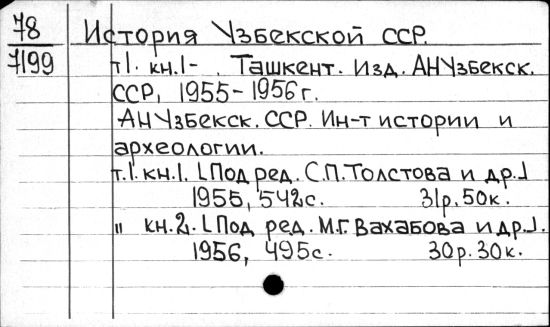 78 История Узбекской ССР.
7199 т1. кн.1- . Ташкент. Изд. АН Узбекск.
ССР, 1955-1956г.
АН Узбекск. ССР. Ин-т истории и
археологии.
т.1. кн.1. [Под ред. С.П.Толстова и др.]
1955, 542с. 31р.50к.
" кн.2. [Под ред. М.Г.Вахабова и др.].
1956, 495с. 30р.30к.